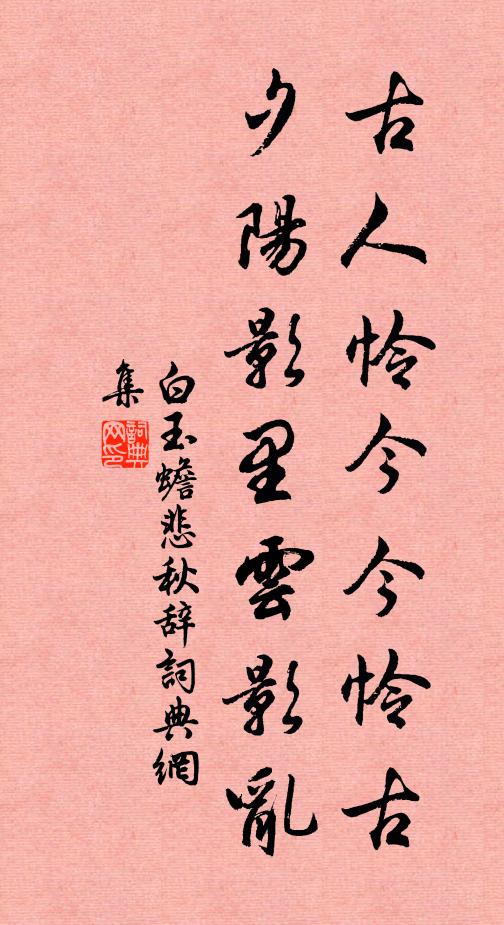 古人怜今今怜古
夕陽影里雲影亂
白玉蟾悲秋辞詞典網
集
詞典
网印